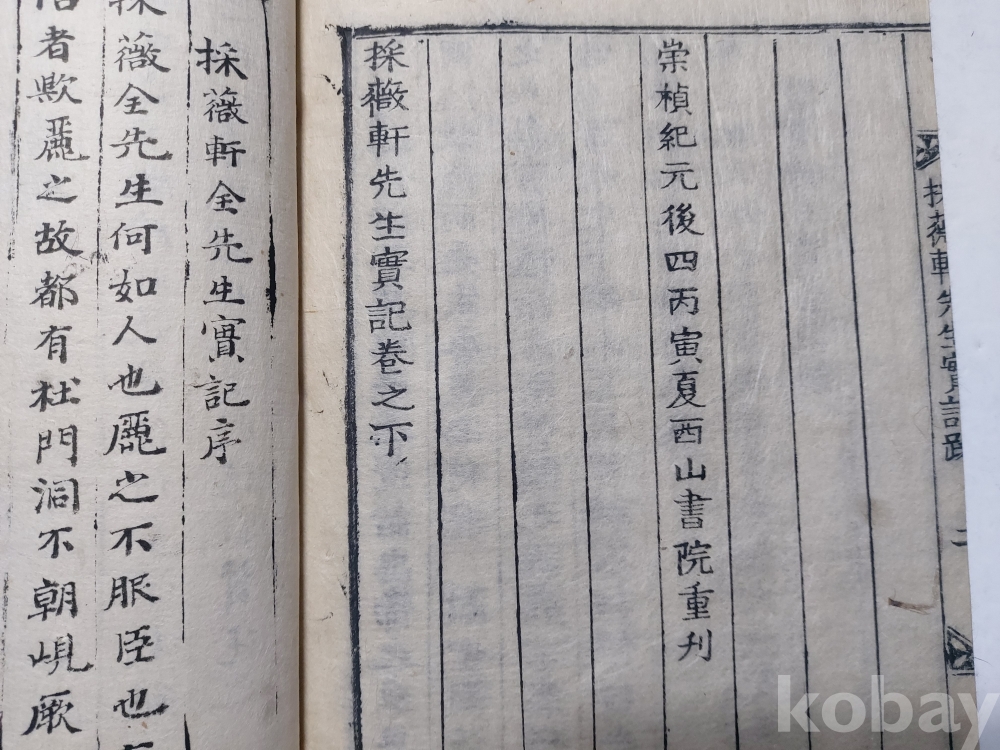 採薇軒先生實記跋
二
崇楨紀元後四丙寅夏西山書院重刊
採薇軒先生實記卷之下
採薇軒全先生實記序
採薇全先生何如人也麗之不服臣也
者歟麗之故都有杜門洞不朝峴厥
kobay